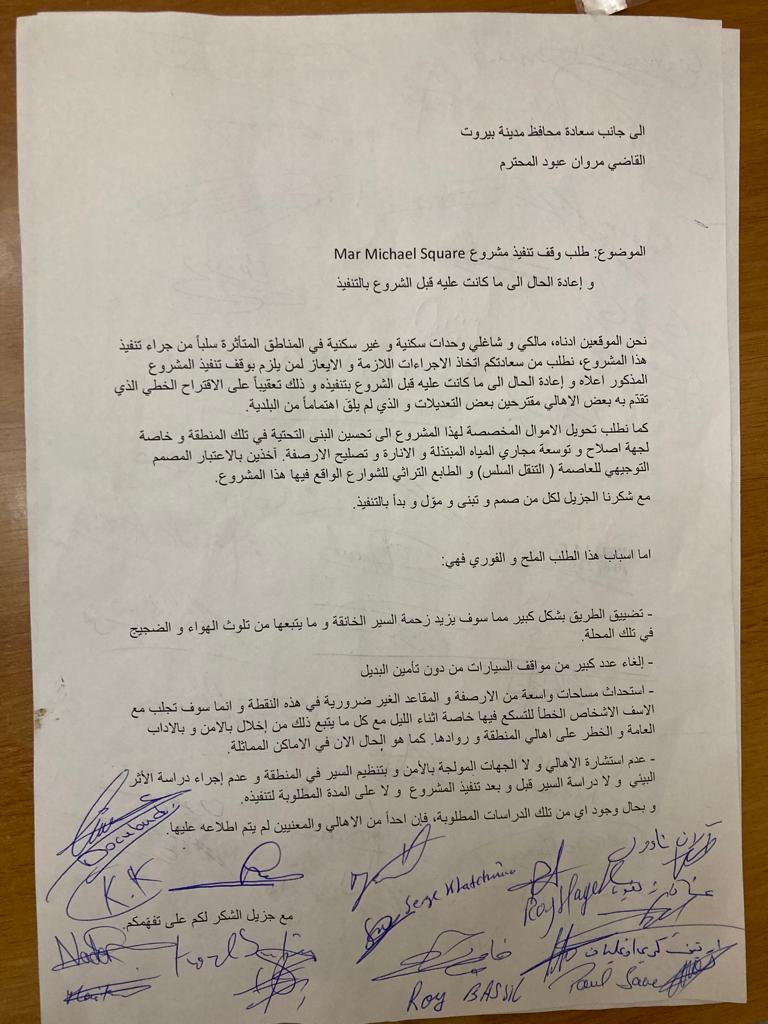 الى جانب سعادة محافظ مدينة بيروت
القاضي مروان عبود المحترم
الموضوع: طلب وقف تنفيذ مشروع Mar Michael Square
و إعادة الحال الى ما كانت عليه قبل الشروع بالتنفيذ
نحن الموقعين ادناه، مالكي و شاغلي وحدات سكنية و غير سكنية في المناطق المتأثرة سلباً من جراء تنفيذ
هذا المشروع، نطلب من سعادتكم اتخاذ الاجراءات اللازمة و الايعاز لمن يلزم بوقف تنفيذ المشروع
المذكور اعلاه و إعادة الحال الى ما كانت عليه قبل الشروع بتنفيذه و ذلك تعقيباً على الاقتراح الخطي الذي
تقدّم به بعض الاهالي مقترحين بعض التعديلات و الذي لم يلقَ اهتماماً من البلدية.
كما نطلب تحويل الاموال المخصصة لهذا المشروع الى تحسين البنى التحتية في تلك المنطقة و خاصة
لجهة اصلاح و توسعة مجاري المياه المبتذلة و الانارة و تصليح الارصفة. آخذين بالاعتبار المصمم
التوجيهي للعاصمة ( التنقل السلس) و الطابع التراثي للشوارع الواقع فيها هذا المشروع.
مع شكرنا الجزيل لكل من صمم و تبنى و موّل و بدأ بالتنفيذ.
اما اسباب هذا الطلب الملح و الفوري فهي:
- تضييق الطريق بشكل كبير مما سوف يزيد زحمة السير الخانقة و ما يتبعها من تلوث الهواء و الضجيج
في تلك المحلة.
- إلغاء عدد كبير من مواقف السيارات من دون تأمين البديل
- استحداث مساحات واسعة من الارصفة و المقاعد الغير ضرورية في هذه النقطة و انما سوف تجلب مع
الاسف الاشخاص الخطأ للتسكع فيها خاصة اثناء الليل مع كل ما يتبع ذلك من إخلال بالامن و بالاداب
العامة و الخطر على اهالي المنطقة و روادها. كما هو الحال الان في الاماكن المماثلة.
- عدم استشارة الاهالي و لا الجهات المولجة بالأمن و بتنظيم السير في المنطقة و عدم إجراء دراسة الأثر
البيئي و لا دراسة السير قبل و بعد تنفيذ المشروع و لا على المدة المطلوبة لتنفيذه.
و بحال وجود اي من تلك الدراسات المطلوبة، فإن احداً من الاهالي والمعنيين لم يتم اطلاعه عليها.
K.K
Serge
Roy
مع جزيل الشكر لكم على تفهّمكم.
Roy BASSIL
Paul